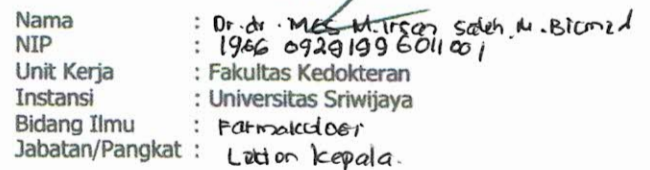 Nama : Dr. dr. MGS M. Irsan Saleh, M. Biomed
NIP : 19660929199601 1001
Unit Kerja : Fakultas Kedokteran
Instansi : Universitas Sriwijaya
Bidang Ilmu : Farmakologi
Jabatan/Pangkat : Lektor Kepala.